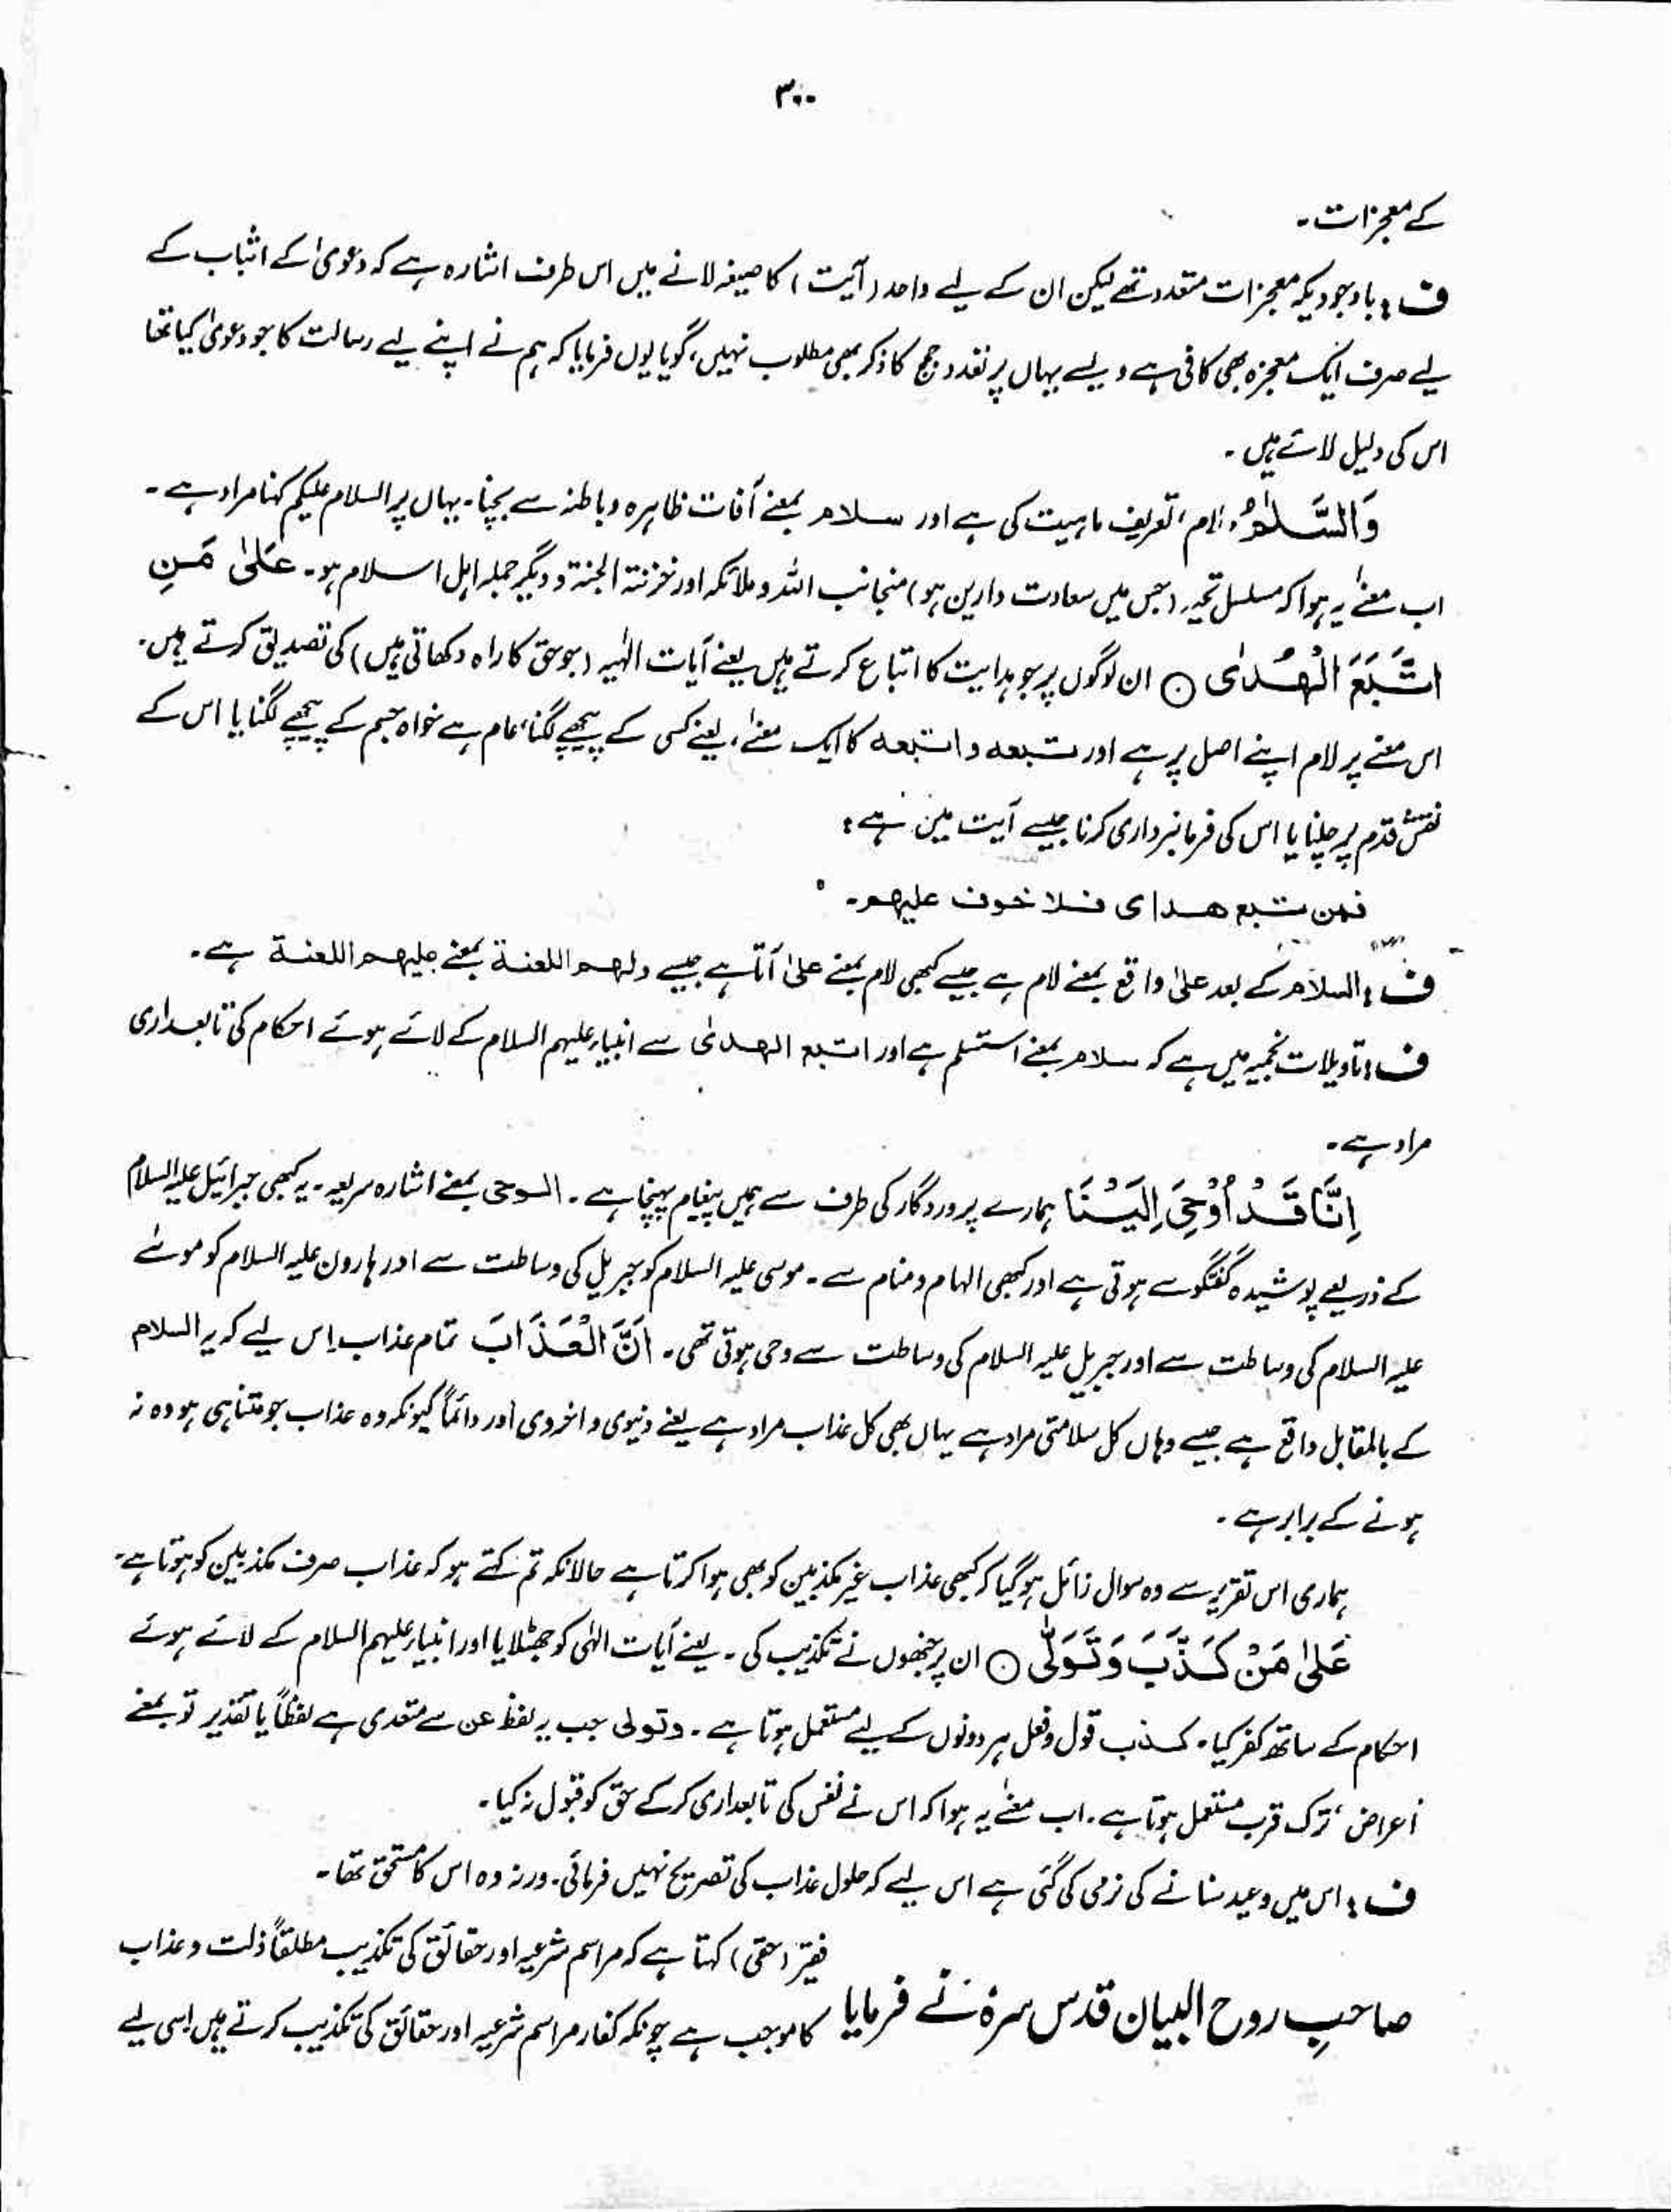 ۳۰۰
کے معجزات۔
ف : باوجودیکہ معجزات متعدد تھے لیکن ان کے لیے واحد (آیت) کا صیغہ لانے میں اس طرف اشارہ ہے کہ دعویٰ کے اثبات کے
لیے صرف ایک معجزہ بھی کافی ہے ویسے یہاں پر تعدد حجج کا ذکر بھی مطلوب نہیں، گویا یوں فرمایا کہ ہم نے اپنے لیے رسالت کا جو دعویٰ کیا تھا
اس کی دلیل لائے ہیں ۔
وَالسَّلٰمُ، لام، تعریف ماہیت کی ہے اور سلام بمعنے آفات ظاہرہ و باطنہ سے بچنا۔ یہاں پر السلام علیکم کہنا مراد ہے ۔
اب معنےٰ یہ ہوا کہ مسلسل تحیہ (جس میں سعادت دارین ہو) منجانب اللہ و ملائکہ اور خزنۃ الجنۃ و دیگر جملہ اہل اسلام ہو۔ عَلٰی مَنِ
اتَّبَعَ الْهُدٰی ○ ان لوگوں پر جو ہدایت کا اتباع کرتے ہیں یعنے آیات الٰہیہ (جو حق کا راہ دکھاتی ہیں) کی تصدیق کرتے ہیں۔
اس معنے پر لام اپنے اصل پر ہے اور تبعہ و اتبعہ کا ایک معنےٰ، یعنے کسی کے پیچھے لگنا، عام ہے خواہ جسم کے پیچھے لگنا یا اس کے
نقش قدم پر چلنا یا اس کی فرمانبرداری کرنا جیسے آیت میں ہے :
فمن تبع هدای فلا خوف علیهم۔
ف : السلام کے بعد علیٰ واقع بمعنے لام ہے جیسے کبھی لام بمعنے علیٰ آتا ہے جیسے ولهم اللعنة بمعنے علیهم اللعنة ہے۔
ف : تاویلات نجمیہ میں ہے کہ سلام بمعنے استسلم ہے اور اتبع الهدیٰ سے انبیاء علیہم السلام کے لائے ہوئے احکام کی تابعداری
مراد ہے۔
اِنَّا قَدْ اُوْحِیَ اِلَیْنَا ہمارے پروردگار کی طرف سے ہمیں پیغام پہنچا ہے ۔ الوحی بمعنے اشارہ سریعہ ۔ یہ کبھی جبرائیل علیہ السلام
کے ذریعے پوشیدہ گفتگو سے ہوتی ہے اور کبھی الہام و منام سے ۔ موسی علیہ السلام کو جبریل کی وساطت سے اور ہارون علیہ السلام کو موسٰے
علیہ السلام کی وساطت سے اور جبریل علیہ السلام کی وساطت سے وحی ہوتی تھی ۔ اَنَّ الْعَذَابَ تمام عذاب اِس لیے کہ یہ السلام
کے بالمقابل واقع ہے جیسے وہاں کل سلامتی مراد ہے یہاں بھی کل عذاب مراد ہے یعنے دنیوی و اخروی اور دائماً کیونکہ وہ عذاب جو متناہی ہو وہ نہ
ہونے کے برابر ہے ۔
ہماری اس تقریر سے وہ سوال زائل ہوگیا کہ کبھی عذاب غیر مکذبین کو بھی ہوا کرتا ہے حالانکہ تم کہتے ہو کہ عذاب صرف مکذبین کو ہوتا ہے۔
عَلٰی مَنْ كَذَّبَ وَتَوَلّٰی ○ ان پر جنھوں نے تکذیب کی ۔ یعنے آیات الٰہی کو جھٹلایا اور انبیاء علیہم السلام کے لائے ہوئے
احکام کے ساتھ کفر کیا ۔ کذب قول و فعل ہر دونوں کے لیے مستعمل ہوتا ہے ۔ وتولی جب یہ لفظ عن سے متعدی ہے لفظاً یا تقدیر تو بمعنے
اعراض، ترک قرب مستعمل ہوتا ہے ۔ اب معنےٰ یہ ہوا کہ اس نے نفس کی تابعداری کرکے حق کو قبول نہ کیا ۔
ف : اس میں وعید سنانے کی نرمی کی گئی ہے اس لیے کہ حلول عذاب کی تصریح نہیں فرمائی ۔ ورنہ وہ اس کا مستحق تھا ۔
فقیر (حقی) کہتا ہے کہ مراسم شرعیہ اور حقائق کی تکذیب مطلقاً ذلت و عذاب
صاحبِ روح البیان قدس سرہٗ نے فرمایا
کا موجب ہے چونکہ کفار مراسم شرعیہ اور حقائق کی تکذیب کرتے ہیں اسی لیے